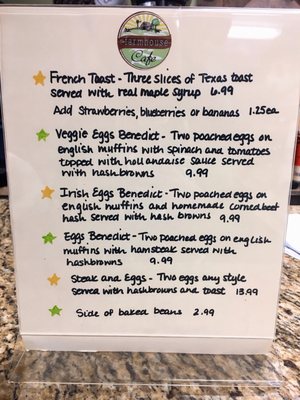 farmhouse
Cafe
French Toast - Three Slices of Texas toast
served with real maple syrup 6.99
Add Strawberries, blueberries or bananas 1.25ea
Veggie Eggs Benedict - Two poached eggs on
english muffins with spinach and tomatoes
topped with hollandaise sauce served
with hashbrowns 9.99
Irish Eggs Benedict - Two poached eggs on
english muffins and homemade corned beef
hash served with hash browns 9.99
Eggs Benedict - Two poached eggs on english
muffins with hamsteak served with
hashbrowns 9.99
Steak and Eggs - Two eggs any style
served with hashbrowns and toast 13.99
Side of baked beans 2.99